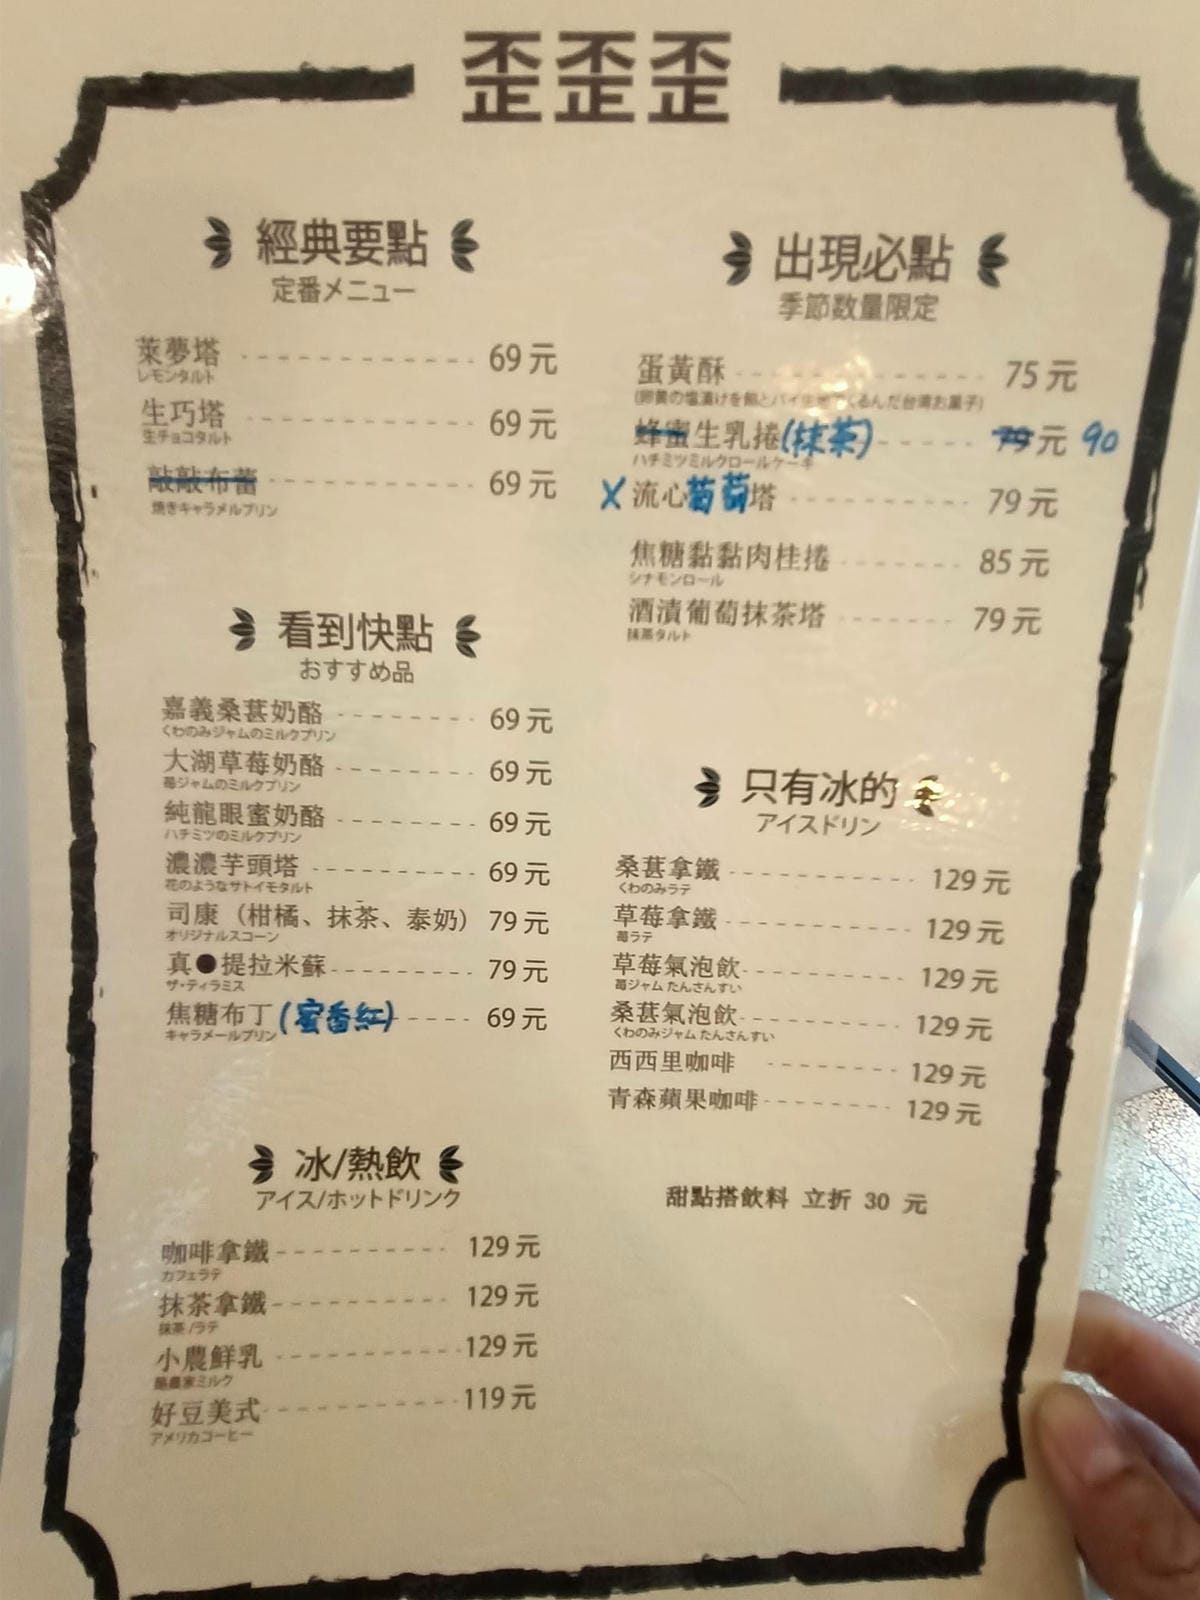 歪歪歪
經典要點
定番メニュー
萊夢塔 69元
レモンタルト
生巧塔 69元
生チョコタルト
敲敲布蕾 69元
焼きキャラメルプリン
看到快點
おすすめ品
嘉義桑葚奶酪 69元
くわのみジャムのミルクプリン
大湖草莓奶酪 69元
苺ジャムのミルクプリン
純龍眼蜜奶酪 69元
ハチミツのミルクプリン
濃濃芋頭塔 69元
花のようなサトイモタルト
司康（柑橘、抹茶、泰奶） 79元
オリジナルスコーン
真●提拉米蘇 79元
ザ・ティラミス
焦糖布丁(蜜香紅) 69元
キャラメールプリン
冰/熱飲
アイス/ホットドリンク
咖啡拿鐵 129元
カフェラテ
抹茶拿鐵 129元
抹茶/ラテ
小農鮮乳 129元
酪農家ミルク
好豆美式 119元
アメリカコーヒー
出現必點
季節数量限定
蛋黃酥 75元
(卵黄の塩漬けを餡とパイ生地でくるんだ台湾お菓子)
蜂蜜生乳捲(抹茶) 79元 90
ハチミツミルクロールケーキ
X 流心葡萄塔 79元
焦糖黏黏肉桂捲 85元
シナモンロール
酒漬葡萄抹茶塔 79元
抹茶タルト
只有冰的
アイスドリン
桑葚拿鐵 129元
くわのみラテ
草莓拿鐵 129元
苺ラテ
草莓氣泡飲 129元
苺ジャム たんさんすい
桑葚氣泡飲 129元
くわのみジャム たんさんすい
西西里咖啡 129元
青森蘋果咖啡 129元
甜點搭飲料 立折 30 元